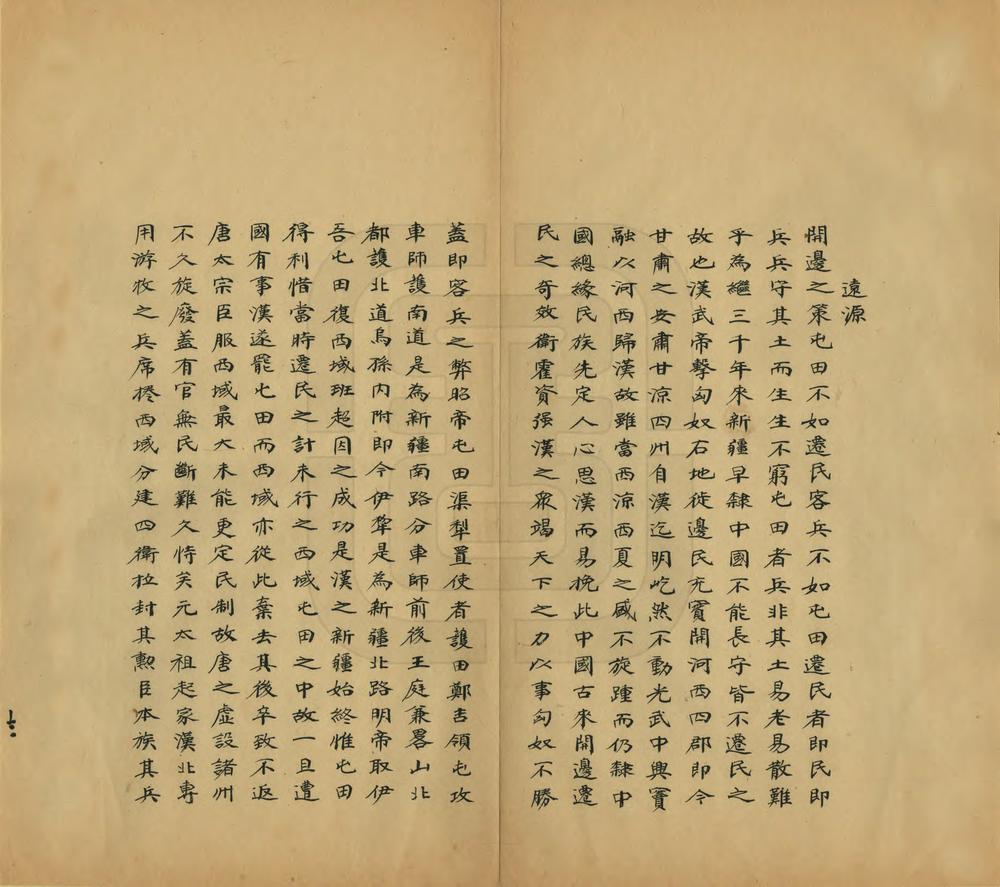 遠源
開邊之策屯田不如遷民客兵不如屯田遷民者即民即
兵兵守其土而生生不窮屯田者兵非其土易老易散難
乎為繼三千年來新疆早隸中國不能長守皆不遷民之
故也漢武帝擊匈奴右地徙邊民充實開河西四郡即今
甘肅之安肅甘涼四州自漢迄明屹然不動光武中興竇
融以河西歸漢故雖當西涼西夏之盛不旋踵而仍隸中
國總緣民族先定人心思漢而易挽此中國古來開邊遷
民之奇效衛霍資强漢之衆竭天下之力以事匈奴不勝
蓋即客兵之弊昭帝屯田渠犁置使者護田鄭吉領屯攻
車師護南道是為新疆南路分車師前後王庭兼畧山北
都護北道烏孫內附即今伊犂是為新疆北路明帝取伊
吾屯田復西域班超因之成功是漢之新疆始終惟屯田
得利惜當時遷民之計未行之西域屯田之中故一旦遭
國有事漢遂罷屯田而西域亦從此棄去其後卒致不返
唐太宗臣服西域最大未能更定民制故唐之虛設諸州
不久旋廢蓋有官無民斷難久恃矣元太祖起家漠北專
用游牧之兵席捲西域分建四衛拉封其勲臣本族其兵